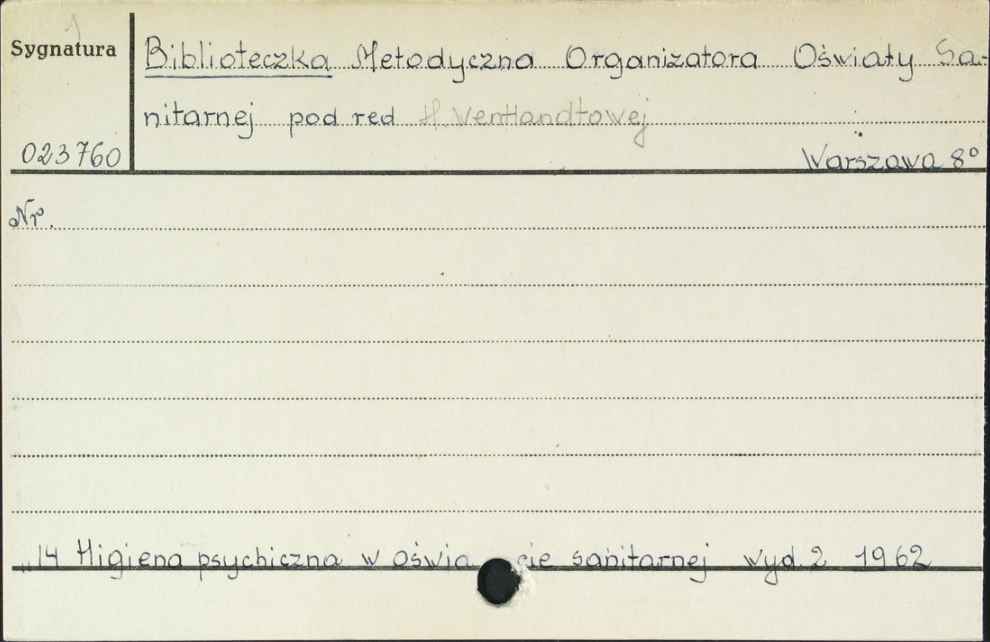 1
Sygnatura
Biblioteczka Metodyczna Organizatora Oświaty Sa-
nitarnej pod red H.
023760
Warszawa 8°
Nr.
„ 14 Higiena psychiczna w oświa cie sanitarnej wyd. 2 1962